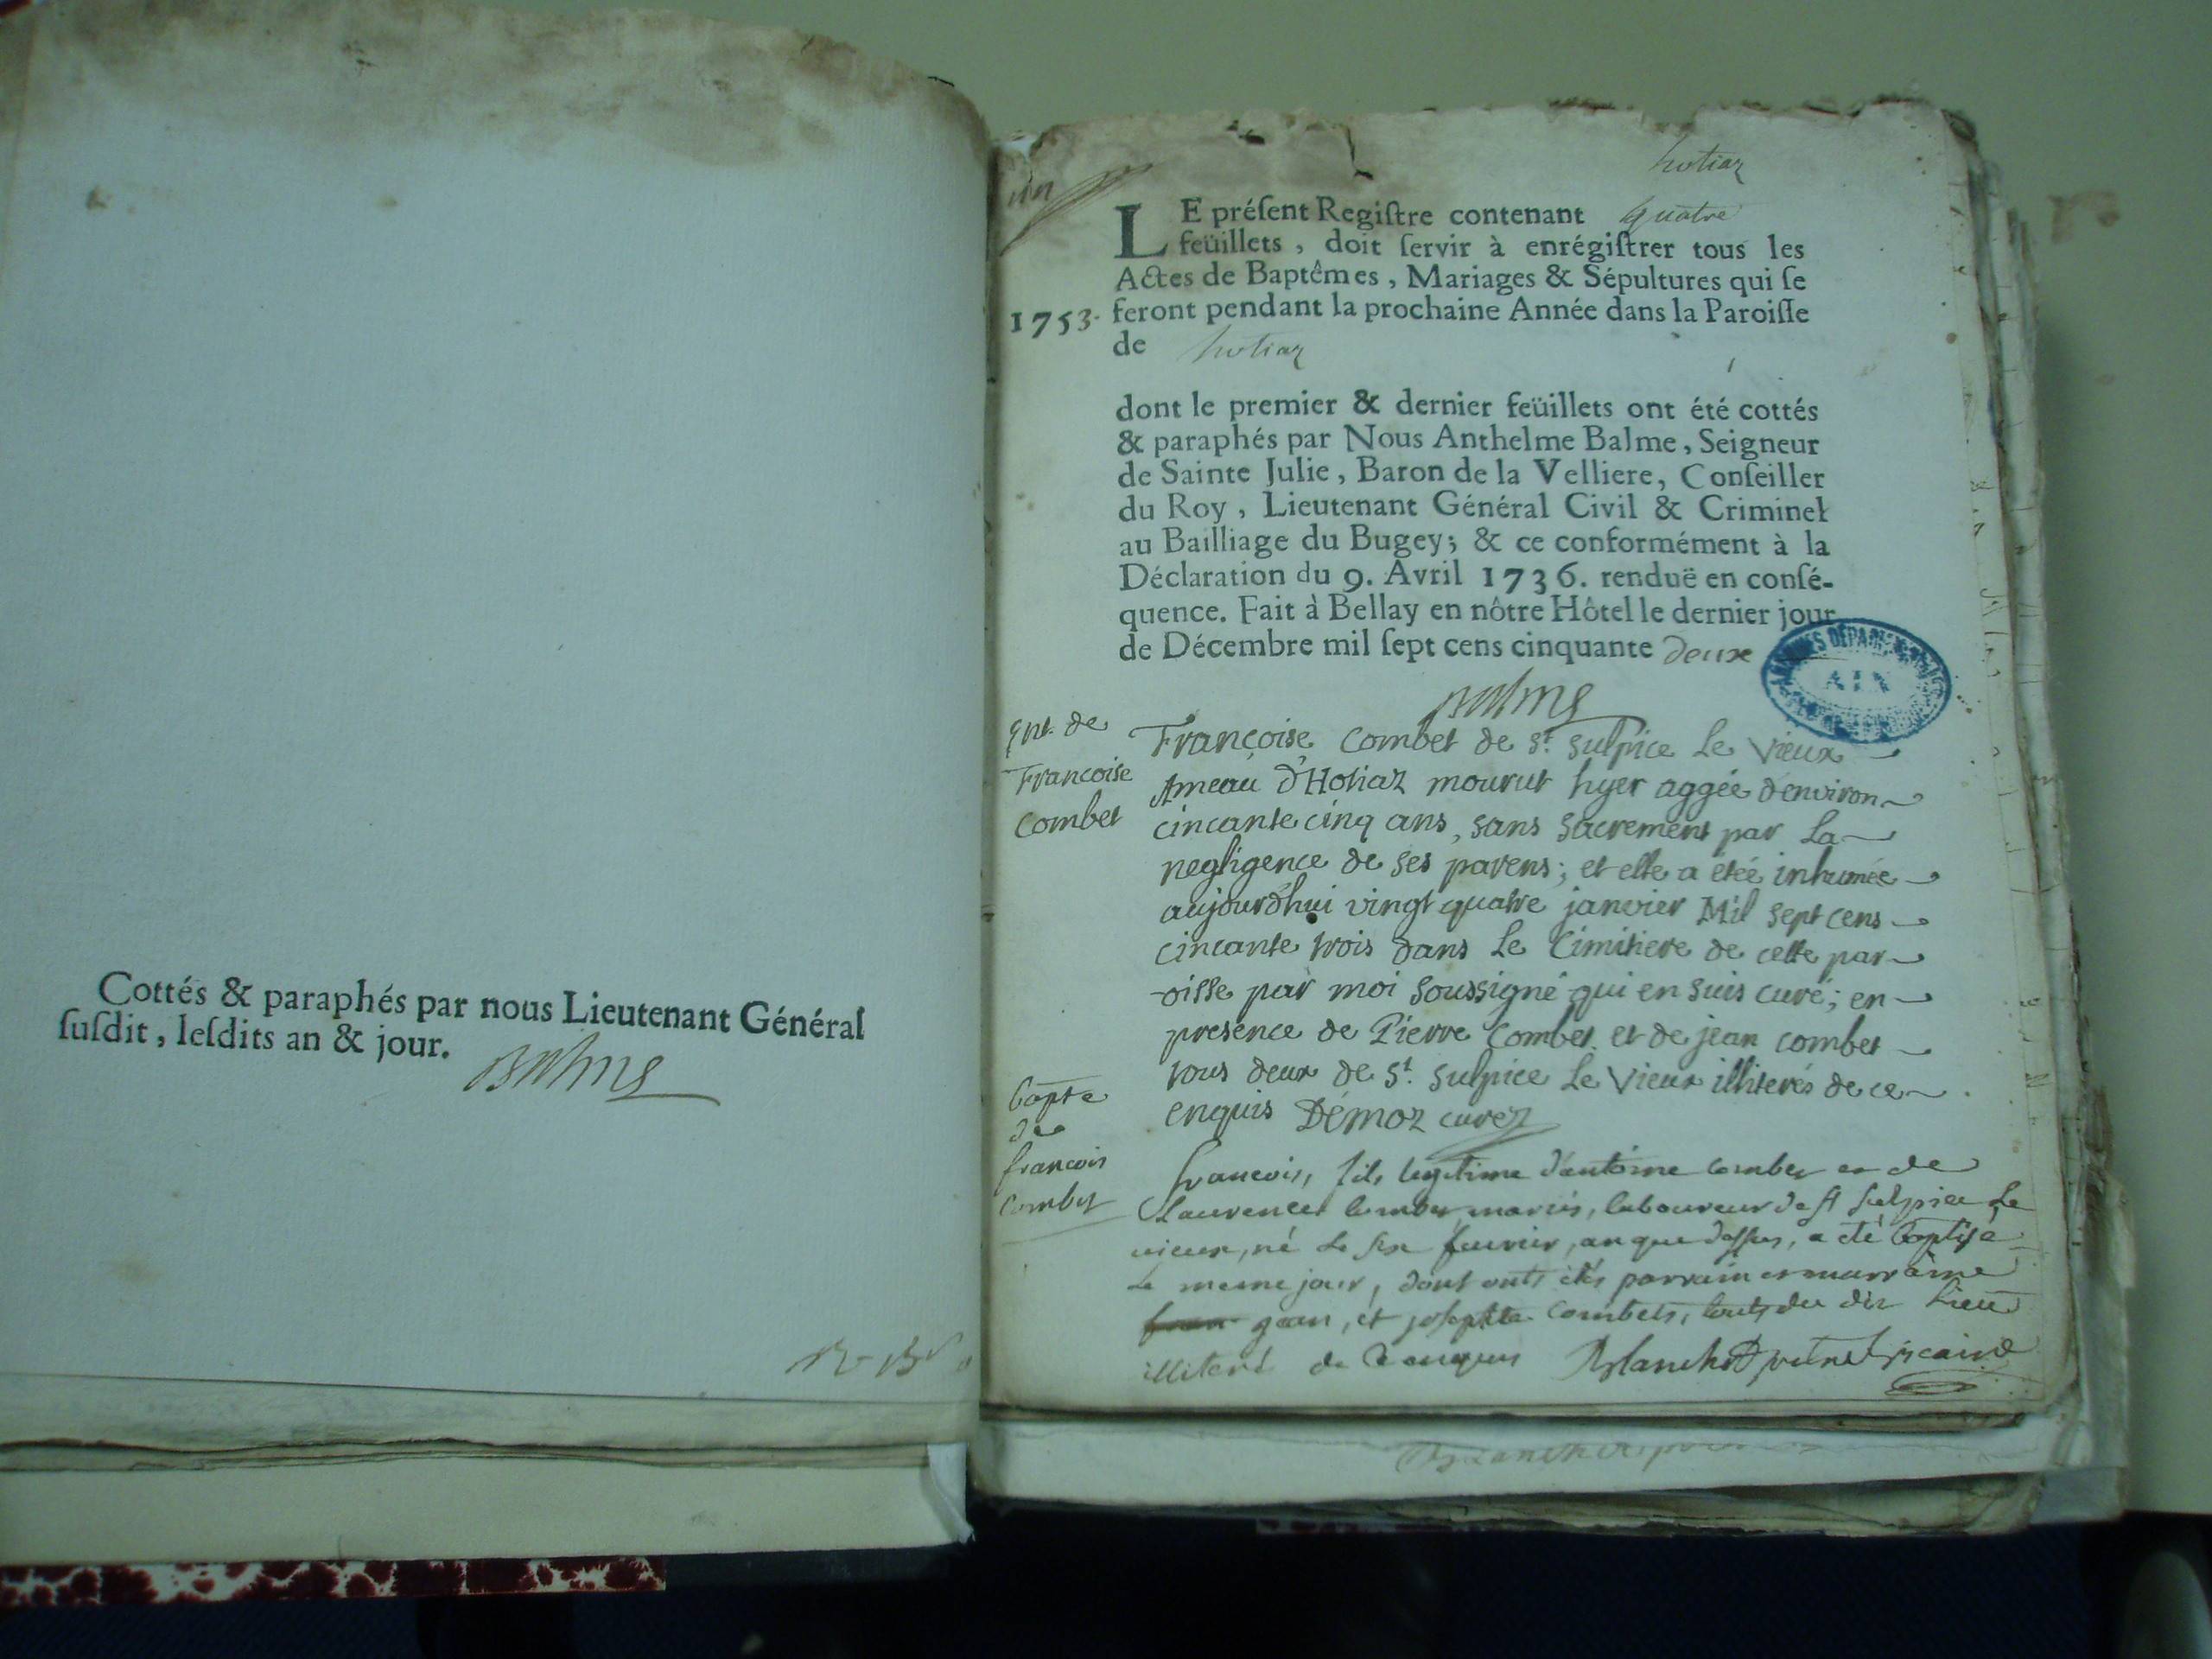 Cottés & paraphés par nous Lieutenant Général
ſuſdit, leſdits an & jour.
Balme
un
hotiaz
LE préſent Regiſtre contenant quatre
feüillets, doit ſervir à enrégiſtrer tous les
Actes de Baptêmes, Mariages & Sépultures qui ſe
1753. feront pendant la prochaine Année dans la Paroiſſe
de hotiaz
dont le premier & dernier feüillets ont été cottés
& paraphés par Nous Anthelme Balme, Seigneur
de Sainte Julie, Baron de la Velliere, Conſeiller
du Roy, Lieutenant Général Civil & Criminel
au Bailliage du Bugey; & ce conformément à la
Déclaration du 9. Avril 1736. renduë en conſé-
quence. Fait à Bellay en nôtre Hôtel le dernier jour
de Décembre mil ſept cens cinquante deux
AIN
Balme
de
Francoise
Combet
Françoise Combet de St. Sulpice Le Vieux
Ameau d'Hotiaz mourut hyer aggée d'environ
cincante cinq ans, sans sacrement par La
negligence de ses parens; et elle a étée inhumée
aujourd'hui vingt quatre janvier Mil sept cens
cincante trois dans Le Cimitiere de cette par-
-oisse par moi soussigné qui en suis curé; en
presence de Pierre Combet et de jean combet
tous deux de St. Sulpice Le Vieux illiterés de ce
enquis Démoz curez
bapte
de
francois
combet
francois, fils legitime d'antoine combet et de
Laurence combet mariés, laboureur de st sulpice Le
vieux, né le six fevrier, an que dessus, a eté baptisé
le meme jour, dont ont étés parrain et marraine
jean, et josephte Combets, touts du dit Lieu
illiteré de ce enquis Blanchet pretre vicaire